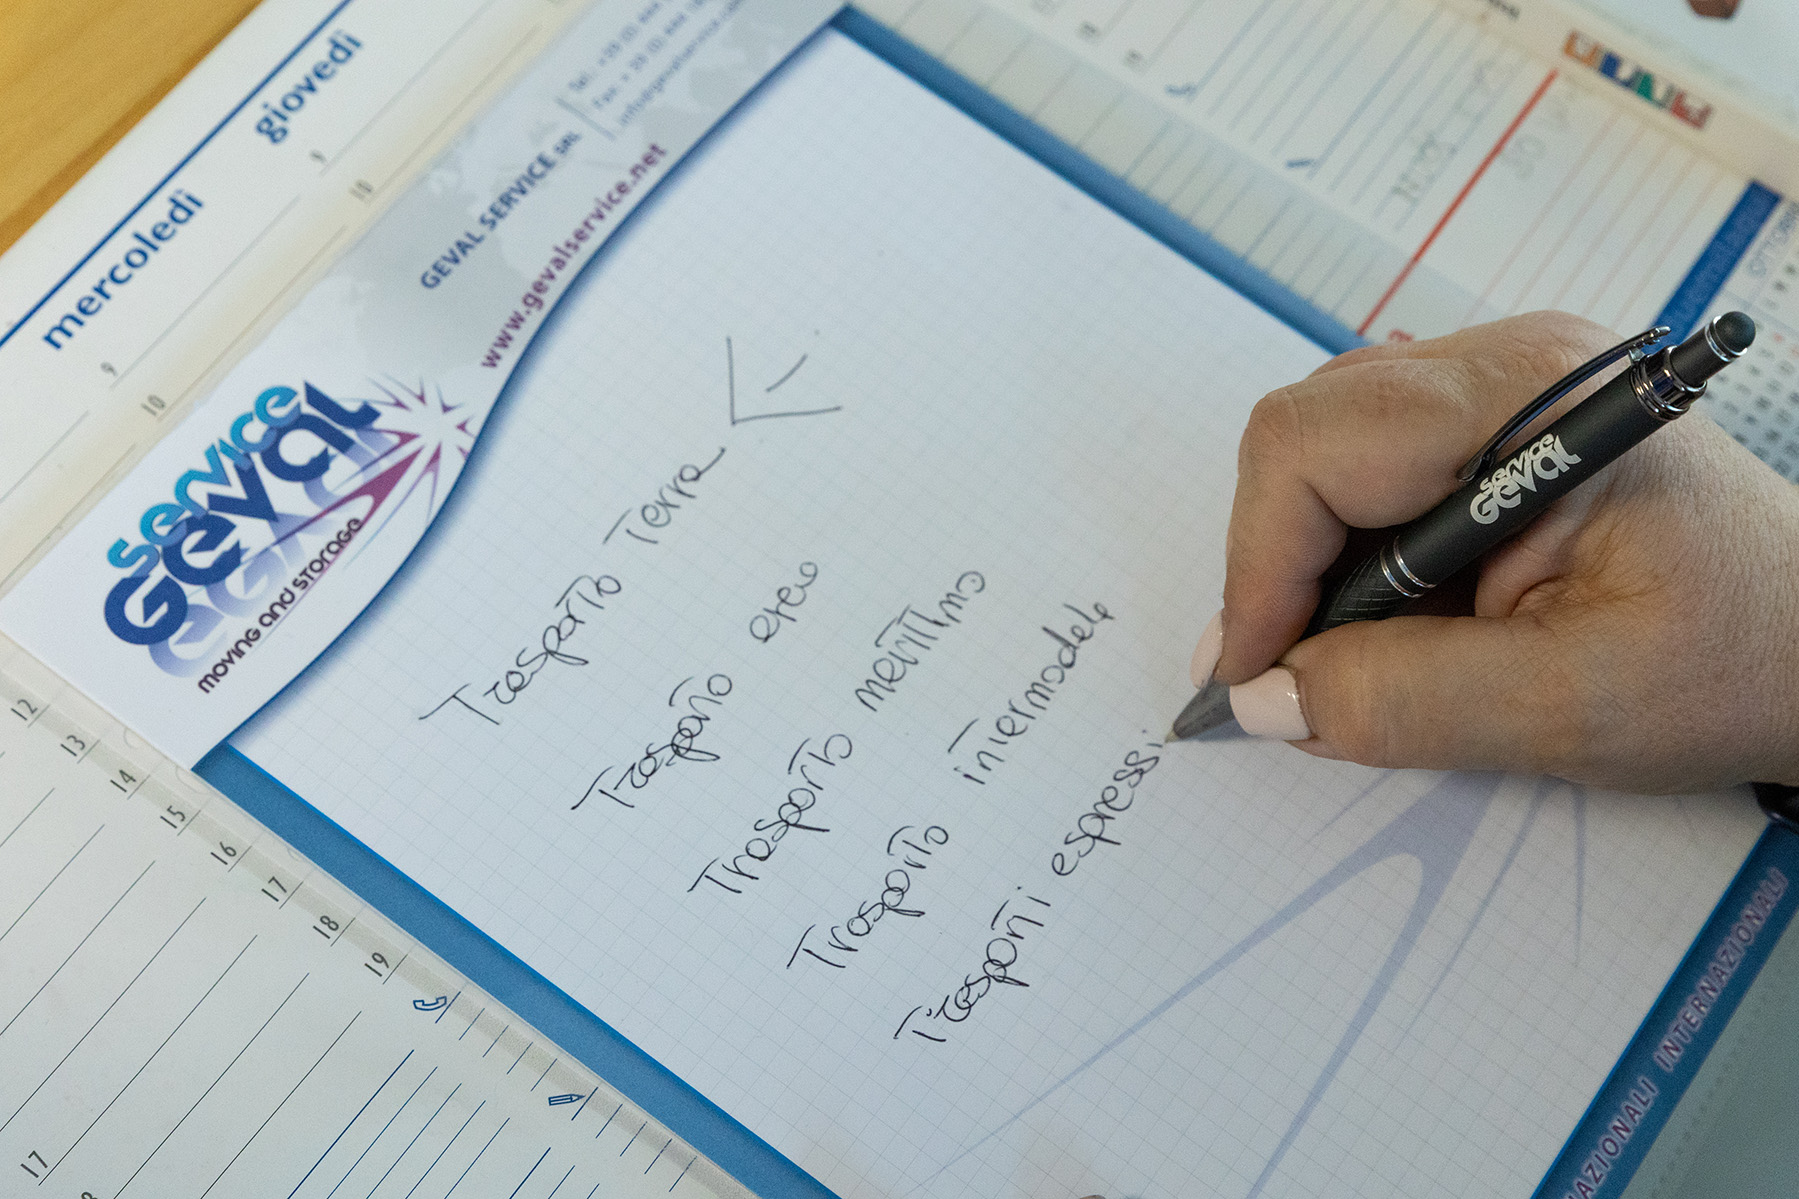 giovedì
mercoledì
9
10
9
10
GEVAL SERVICE SRL
www.gevalservice.net
service
Geval
moving and storage
Trasporto Terra
Trasporto aereo
Trasporto marittimo
Trasporto intermodale
Trasporti espressi
service
Geval
12
13
14
15
16
17
18
19
17
INTERNAZIONALI